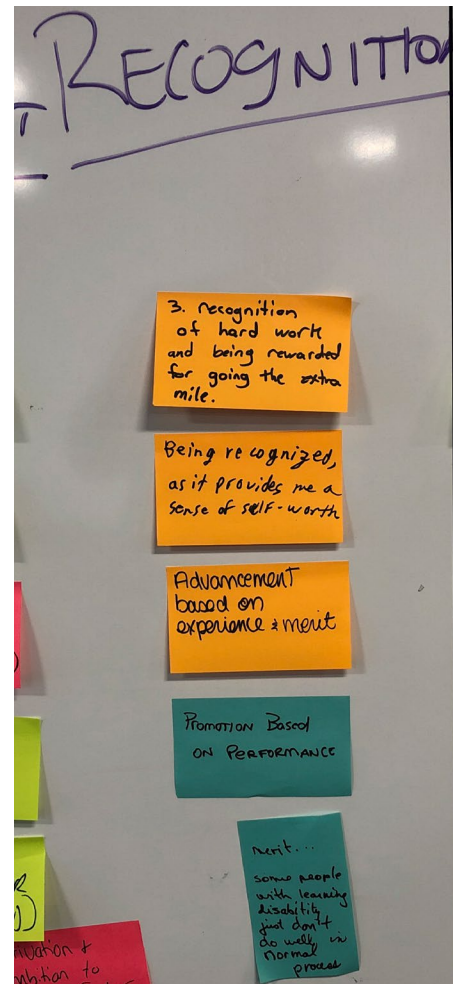 RECOGNITION
3. recognition
of hard work
and being rewarded
for going the extra
mile.
Being recognized,
as it provides me a
sense of self-worth
Advancement
based on
experience & merit
Promotion Based
on Performance
merit...
some people
with learning
disability
just don't
do well in
normal
process